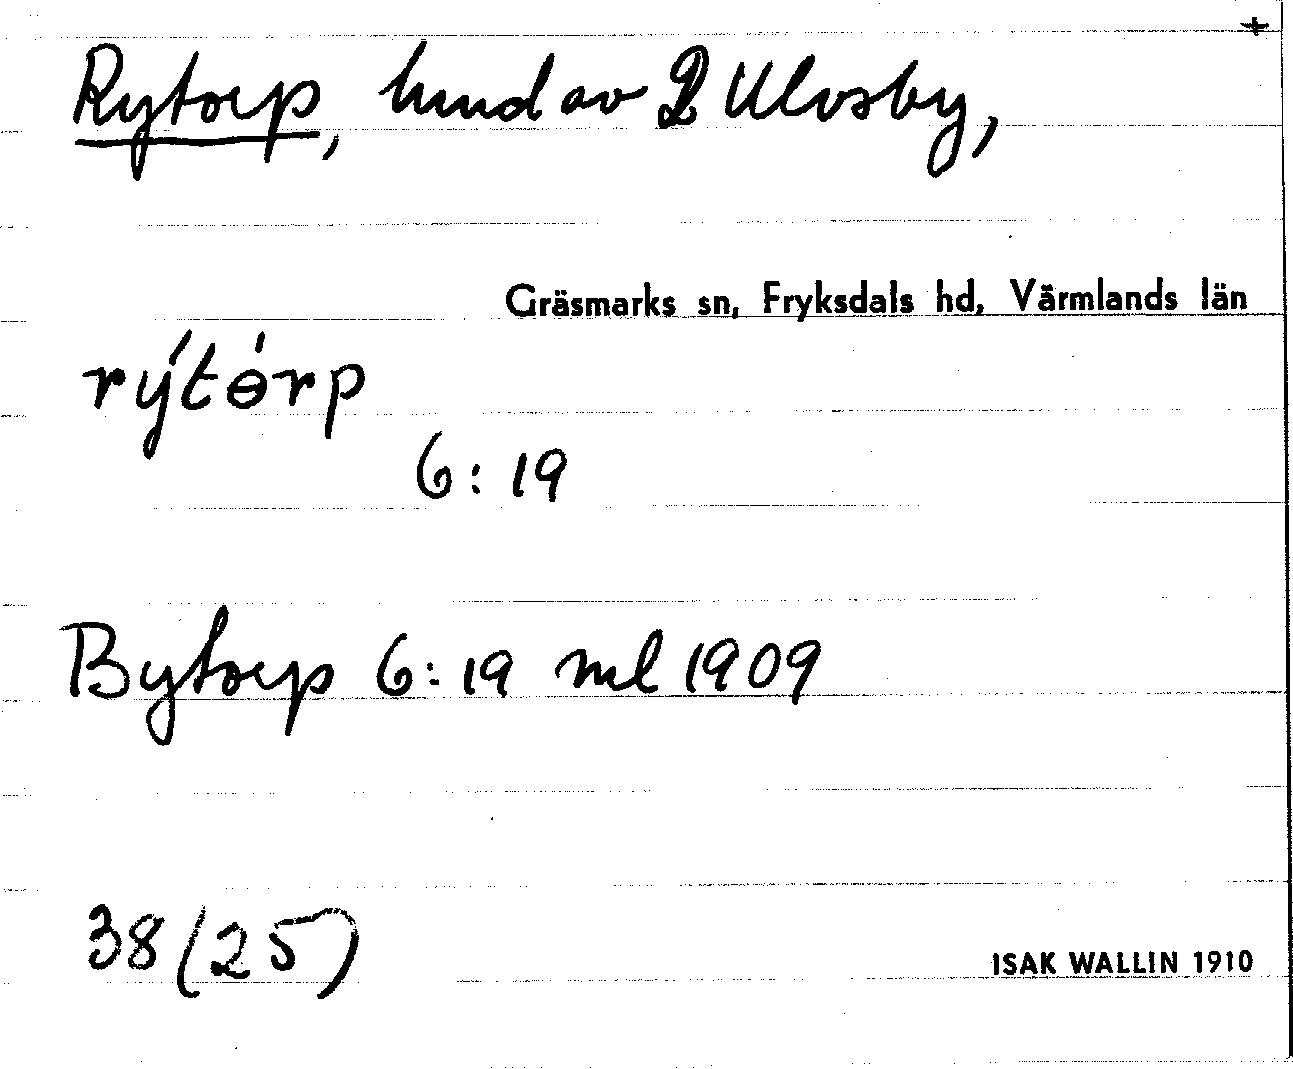 +
Rytorp, hmd av 2 Ulvsby,
Gräsmarks sn, Fryksdals hd, Värmlands län
rýtɵ́rp
6:19
Bytorp 6:19 ml 1909
38 (25)
ISAK WALLIN 1910